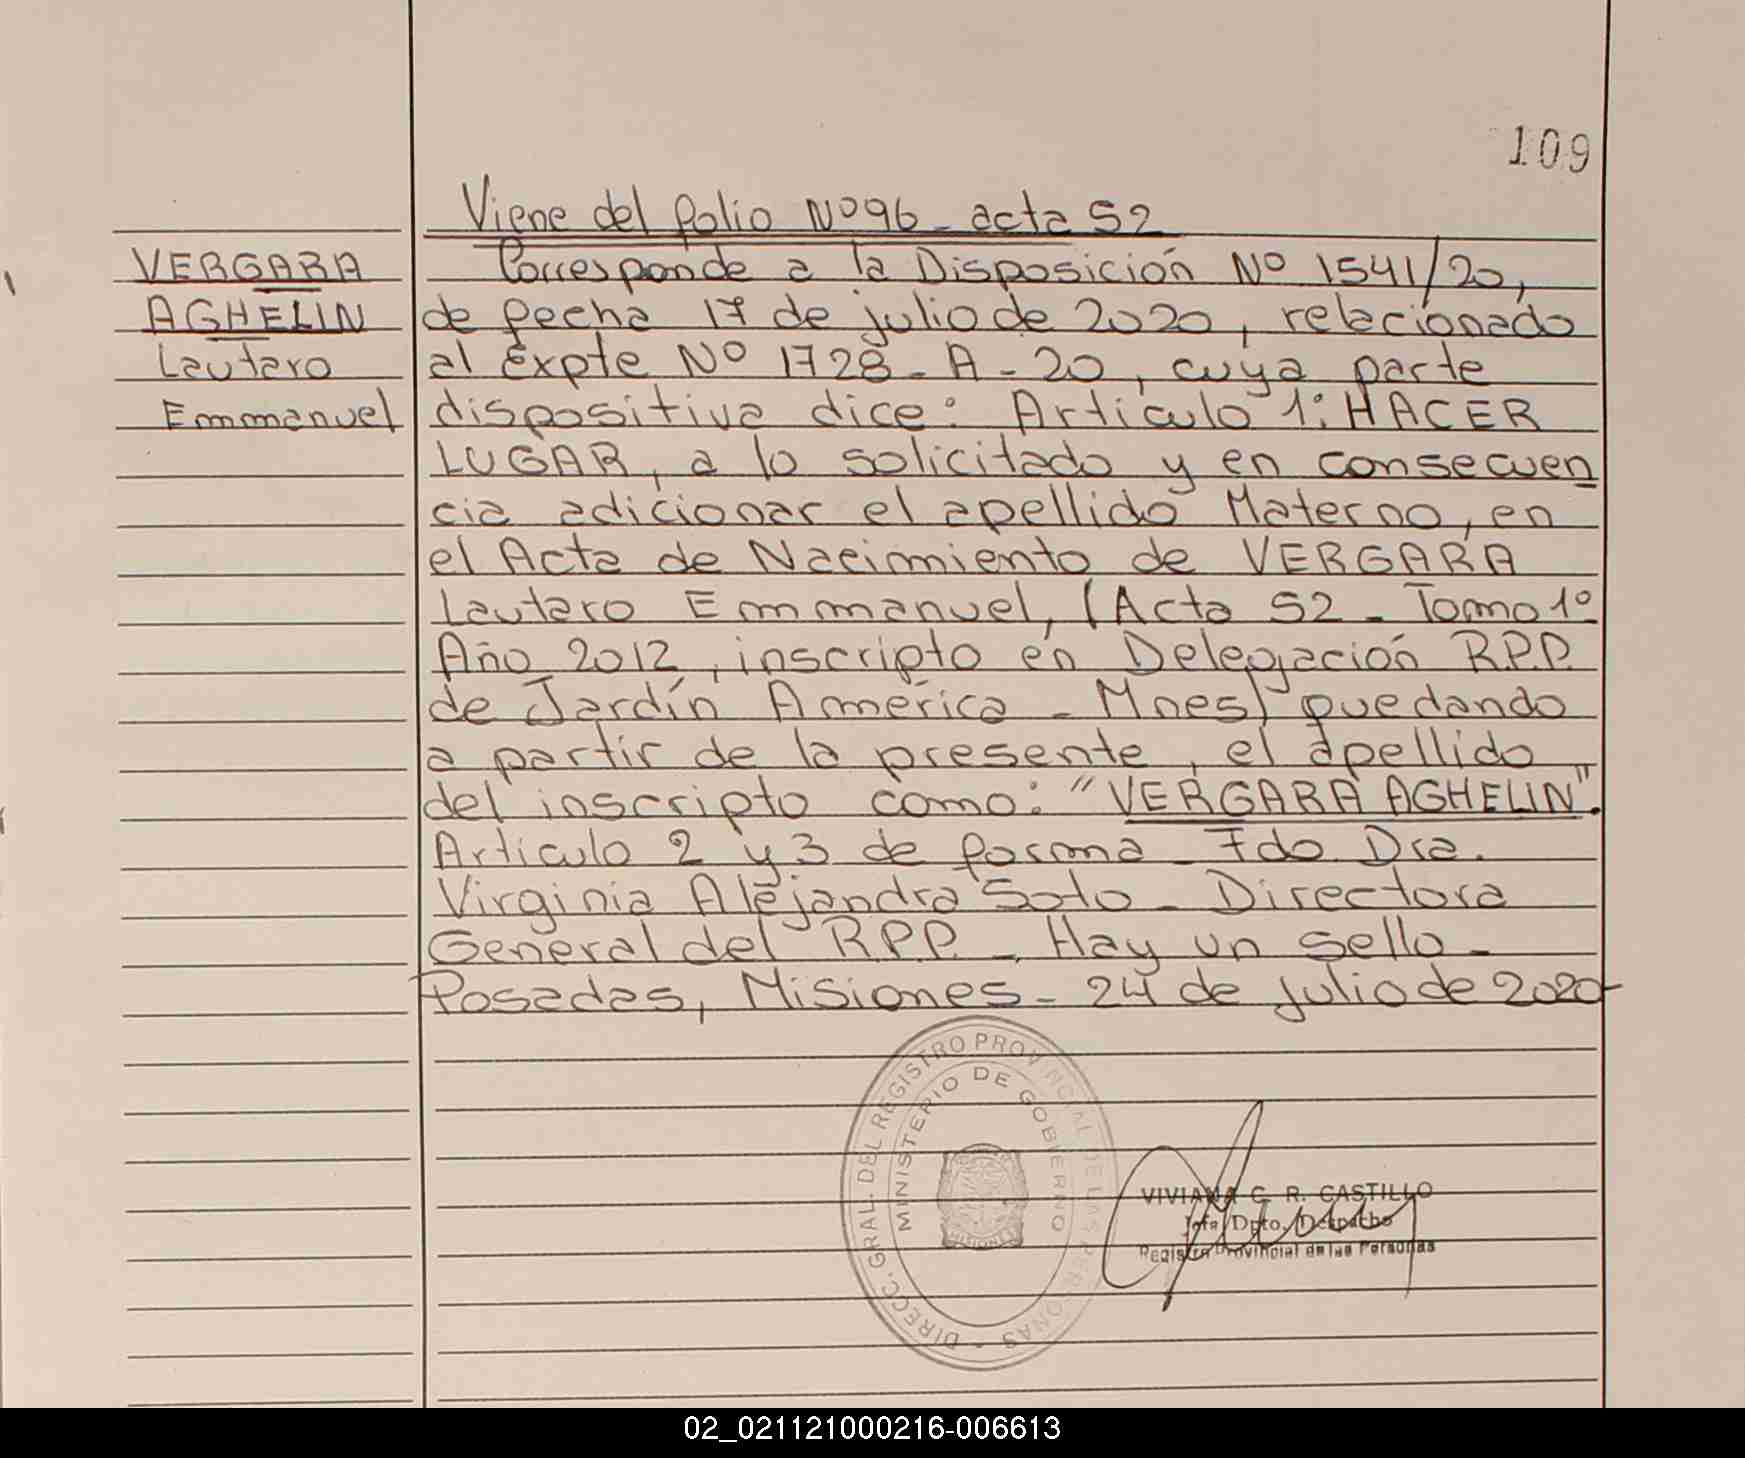 109
Viene del folio Nº 96 - acta 52
VERGARA
AGHELIN
Lautaro
Emmanuel
Corresponde a la Disposición Nº 1541/20,
de fecha 17 de julio de 2020, relacionado
al Expte Nº 1728 - A - 20, cuya parte
dispositiva dice: Artículo 1: HACER
LUGAR, a lo solicitado y en consecuen
cia adicionar el apellido Materno, en
el Acta de Nacimiento de VERGARA
Lautaro Emmanuel, (Acta 52 - Tomo 1º
Año 2012, inscripto en Delegación R.P.P.
de Jardín América - Mnes) quedando
a partir de la presente, el apellido
del inscripto como: "VERGARA AGHELIN".
Articulo 2 y 3 de forma - Fdo. Dra.
Virginia Alejandra Soto - Directora
General del R.P.P. - Hay un sello -
Posadas, Misiones - 24 de julio de 2020-
DIRECC. GRAL. DEL REGISTRO PROVINCIAL DE LAS PERSONAS -
MINISTERIO DE GOBIERNO
MISIONES
VIVIANA C. R. CASTILLO
Jefa Dpto. Despacho
Registro Provincial de las Personas
02_021121000216-006613